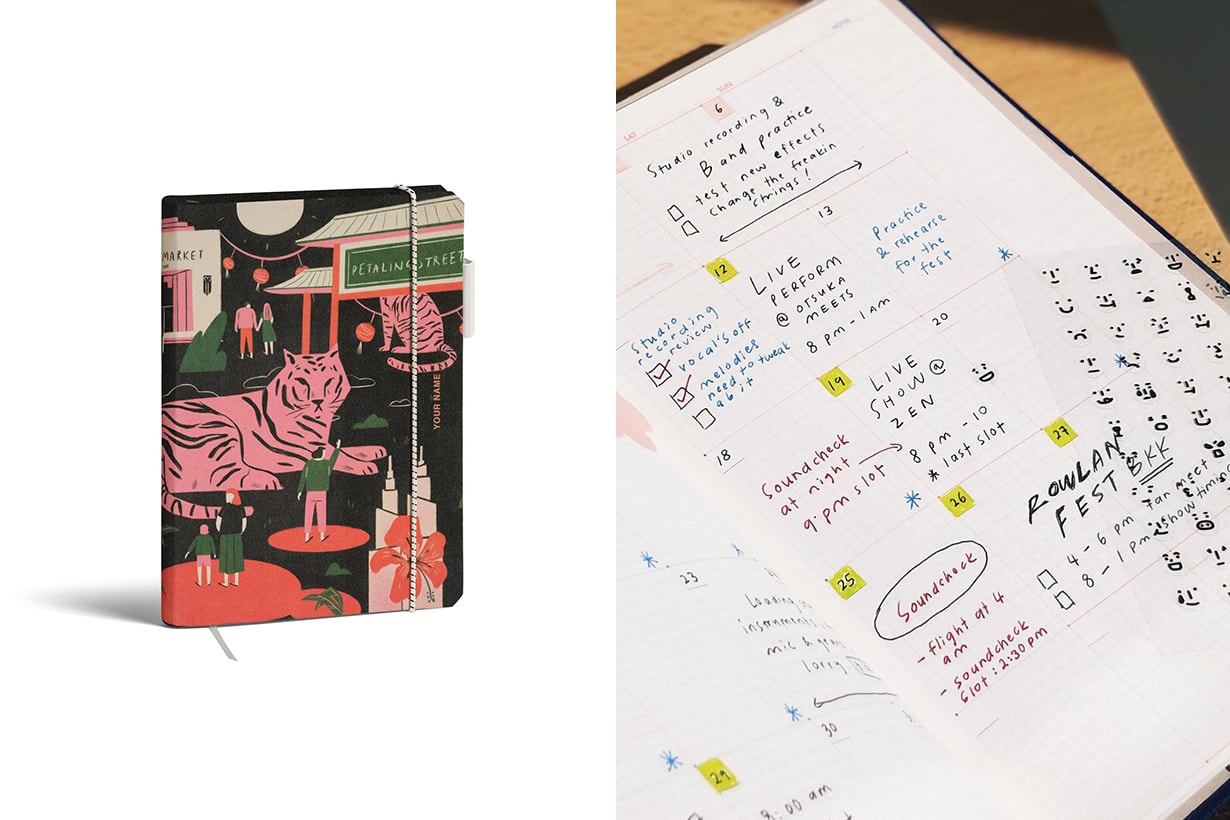 MARKET
PETALING STREET
YOUR NAME
SAT
SUN
6
Studio recording &
Band practice
test new effects
change the freakin
strings!
12
LIVE
PERFORM
@ OTSUKA
MEETS
8 pm - 1 am
13
Practice
& rehearse
for the
fest
Studio
recording
review
vocal's off
melodies
need to tweak
a bit
18
19
LIVE
SHOW @
ZEN
8 pm - 10
* last slot
20
Soundcheck
at night
9.pm slot
23
Loading
instruments
mic &
lorry
25
Soundcheck
- flight at 4
am
- soundcheck
slot : 2:30 pm
26
27
ROWLAN
FEST BKK
4 - 6 pm fan meet
8 - 1 pm show timing
29
8:00 am
30